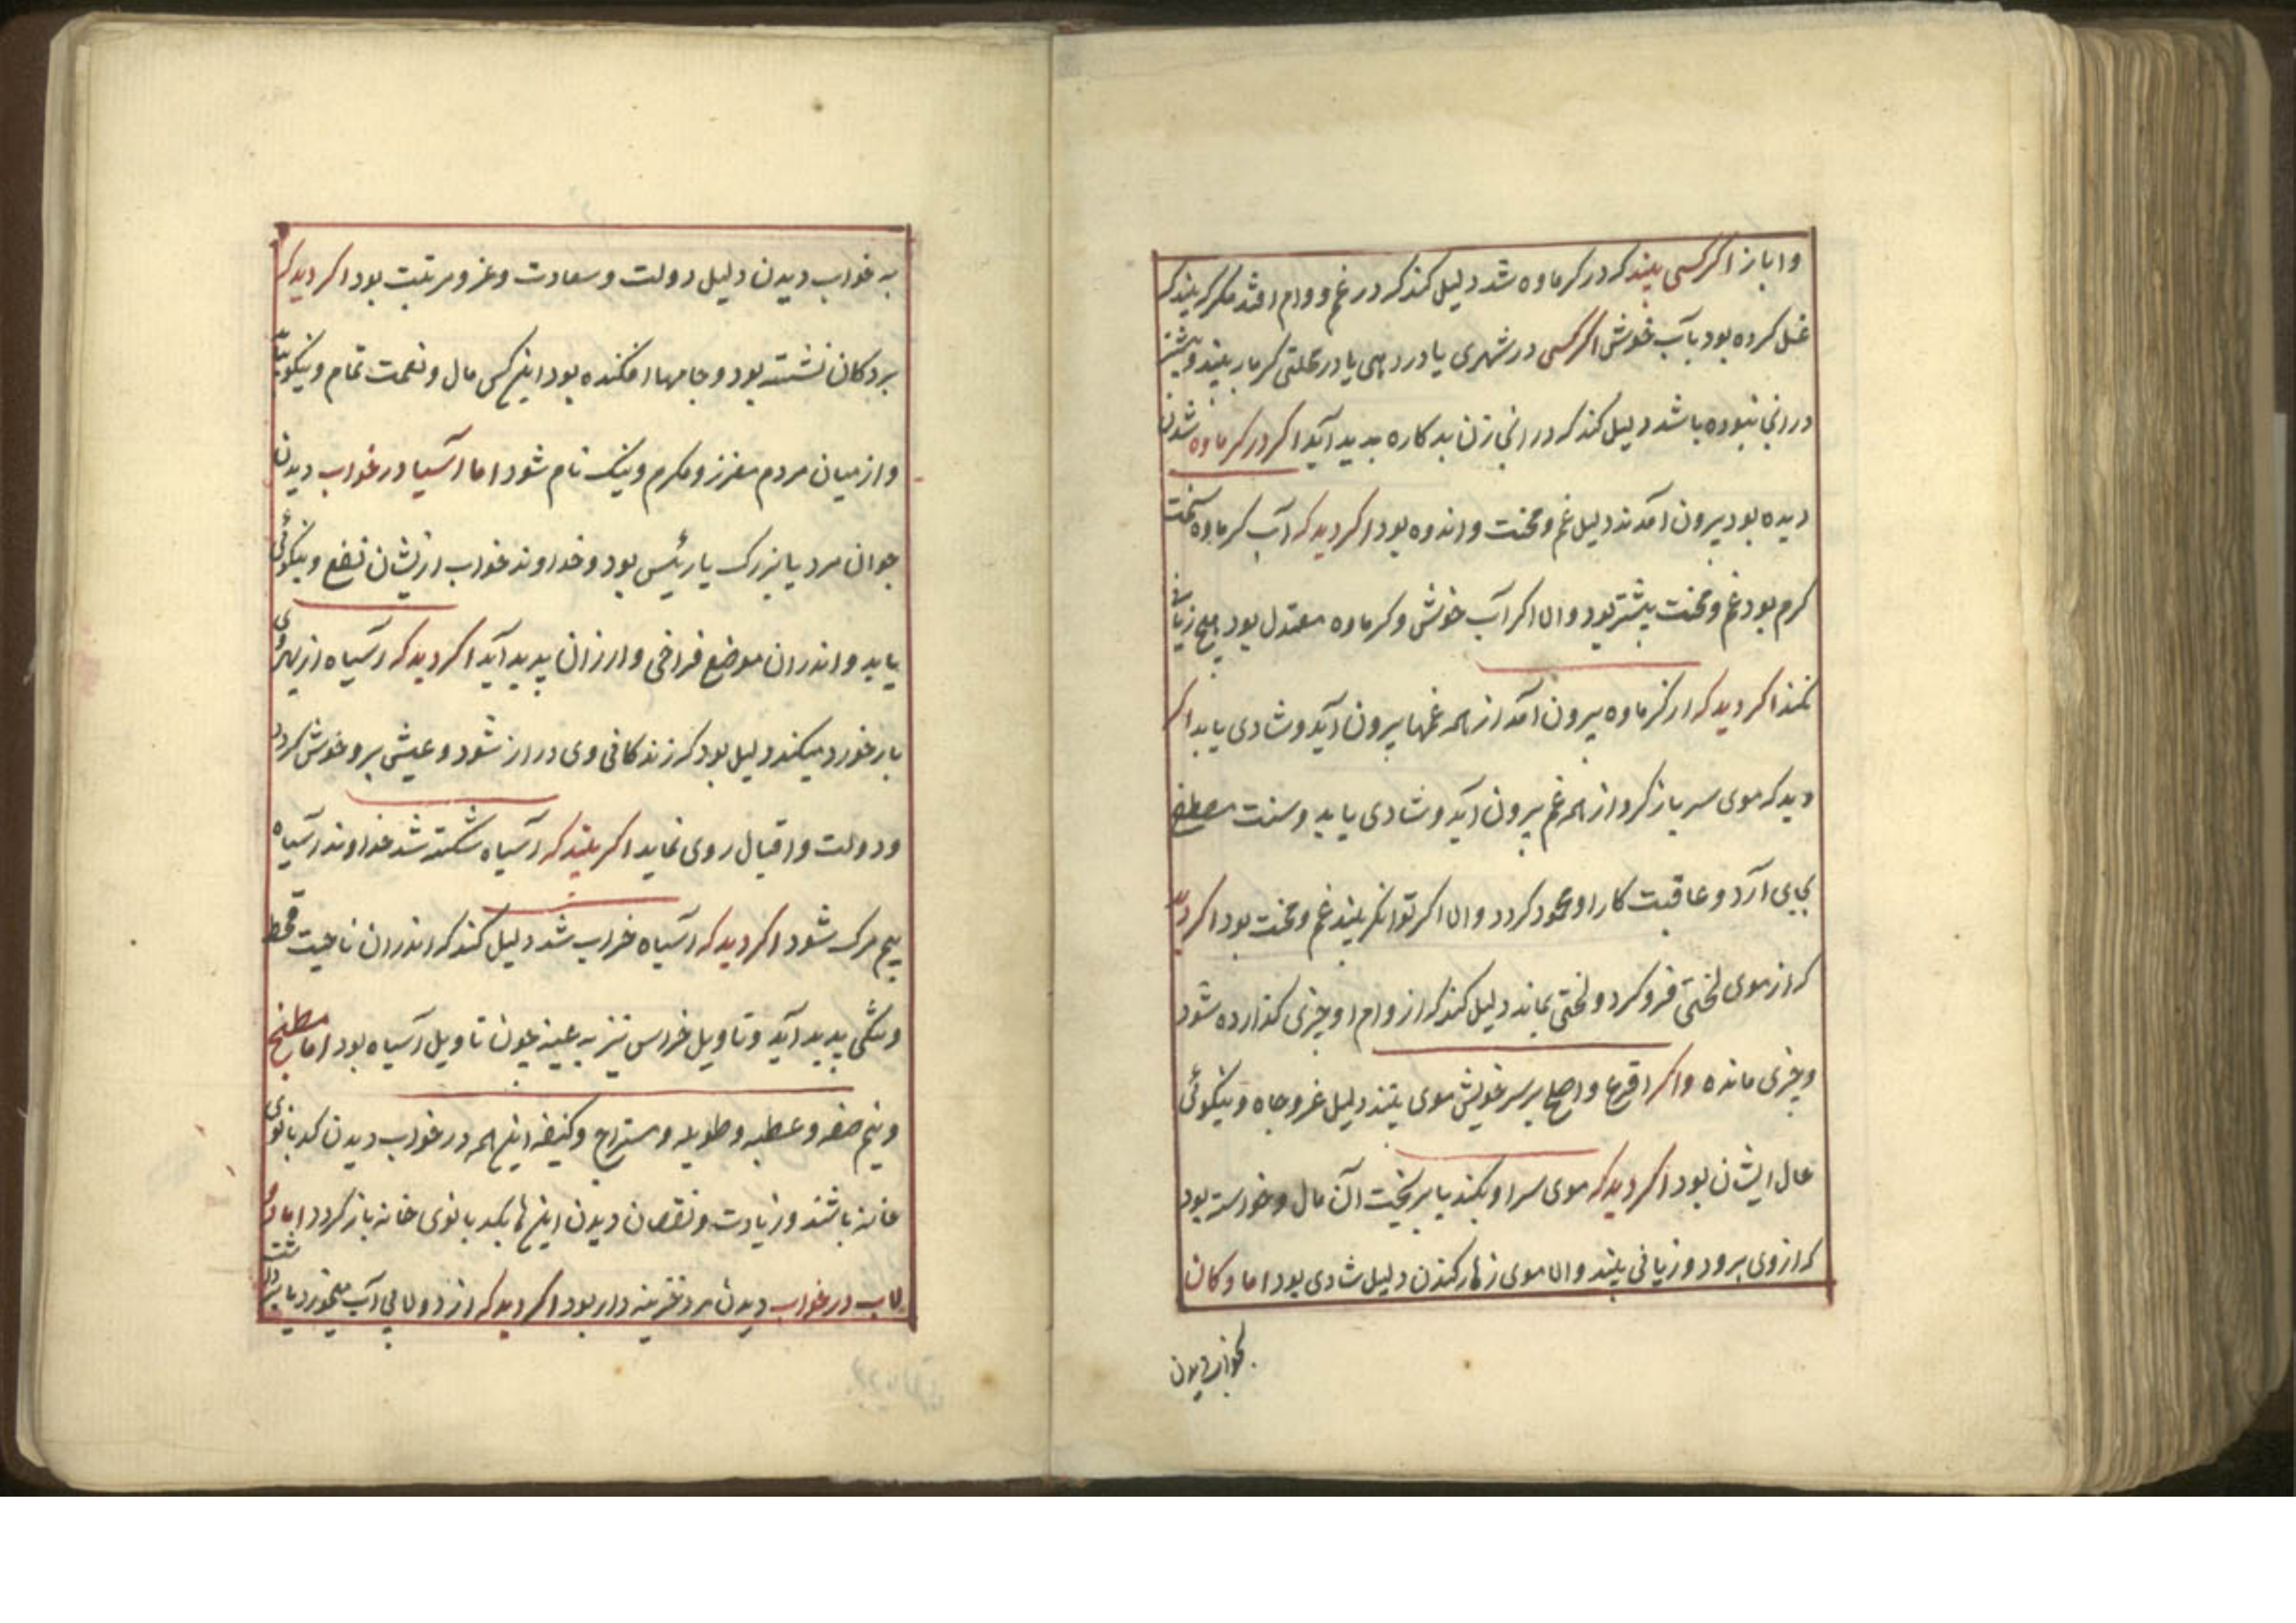 واباز اگر کسی بیند که در کرماوه شد دلیل کند که در غم و وام افتد مگر که بیند که
غسل کرده بود بآب خوش اگر کسی در شهری یا در دهی یا در محلتی گرمابه بیند و پیشتر
در انجا نبوده باشد دلیل کند که در انجا زن بدکاره پدید آید اگر در کرماوه شدن
دیده بود بیرون آمدند دلیل غم و محنت و اندوه بود اگر دید که آب کرماوه سخت
کرم بود غم و محنت بیشتر بود و اما اگر آب خوش و کرماوه معتدل بود هیچ زیانی
نکند اگر دید که از کرماوه بیرون آمد از همه غمها بیرون آید و شادی یابد اگر
دید که موی سر باز کرد از همه غم بیرون آید و شادی یابد و سنت مصطفی
بجای آرد و عاقبت کار او محمود کردد و اما اگر توانگر بیند غم و محنت بود اگر دید
که از موی لختی فرو کرد و لختی بماند دلیل کند که از وام او چیزی کذارده شود
و چیزی مانده و اگر اقرع و اصلع بر سر خویش موی بیند دلیل عز و جاه و نیکوئی
حال ایشان بود اگر دید که موی سر او بکند یا بریخت آن مال و خواسته بود
که از وی برود و زیانی بیند و اما موی زهار کندن دلیل شادی بود اما دکان
بخواب دیدن
به خواب دیدن دلیل دولت و سعادت و عز و مرتبت بود اگر دید که
بر دکان نشسته بود و جامها افکنده بود اینکس مال و نعمت تمام و نیکو یابد
و از میان مردم معزز و مکرم و نیک نام شود اما آسیا در خواب دیدن
جوان مرد یا بزرک یا رئیس بود و خداوند خواب از یشان نفع و نیکوئی
یابد و اندران موضع فراخی و ارزان پدید آید اگر دید که آسیاه از بهر وی
بار خورد میکند دلیل بود که زندکانی وی دراز شود و عیش برو خوش کردد
و دولت و اقبال روی نماید اگر بیند که آسیاه شکسته شد خداوند آسیاه
بیم مرک شود اگر دید که آسیاه خراب شد دلیل کند که اندران ناحیت قحط
و تنکی پدید آید و تاویل خراس نیز به عینه چون تاویل آسیاه بود اما مطبخ
و نیم صفه و عطبه و طویله و مستراح و کنیفه اینهمه در خواب دیدن کدبانوی
خانه باشند و زیادت و نقصان دیدن اینها بکد بانوی خانه باز کردد اما دو
لاب در خواب دیدن مرد خزینه دار بود اگر دید که از دولابی آب میخورد یا